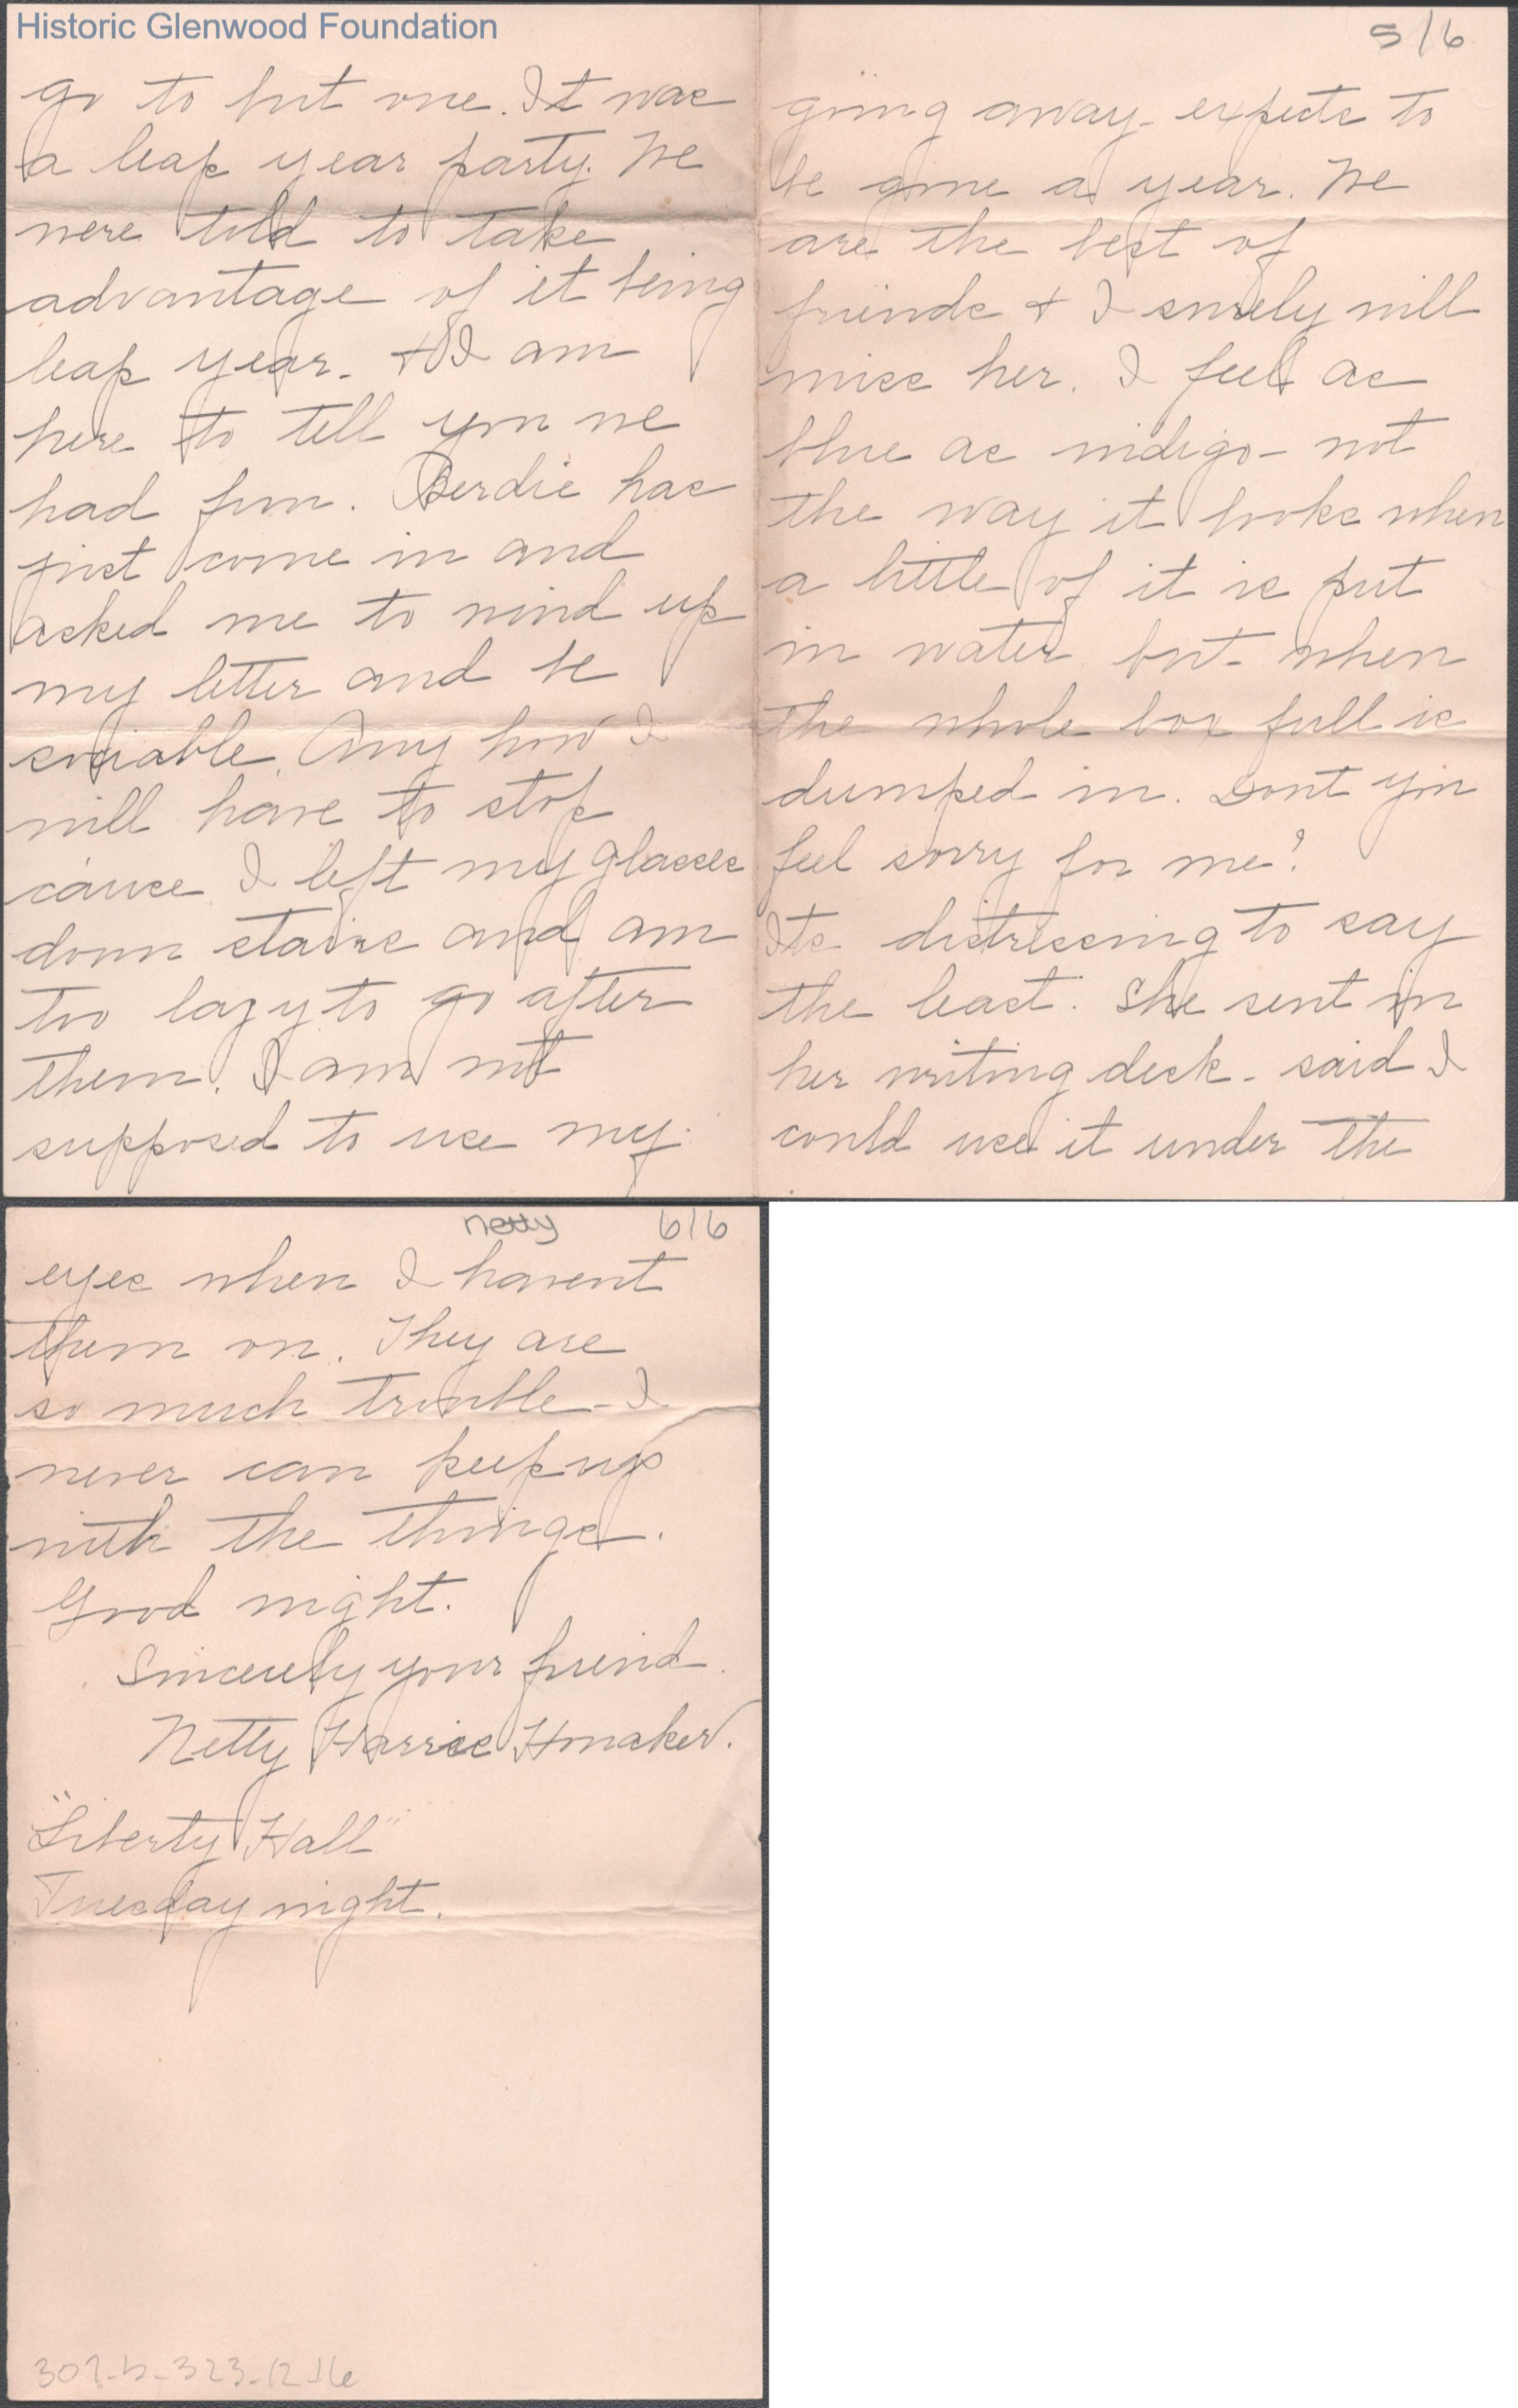 Historic Glenwood Foundation
go to but one. It was
a leap year party. We
were told to take
advantage of it being
leap year. + I am
here to tell you we
had fun. Berdie has
just come in and
asked me to wind up
my letter and be
sociable. Any how I
will have to stop
'cause I left my glasses
down stairs and am
too lazy to go after
them. I am not
supposed to use my
5/6
going away - expects to
be gone a year. We
are the best of
friends + I surely will
miss her. I feel as
blue as indigo - not
the way it looks when
a little of it is put
in water but - when
the whole box full is
dumped in. Dont you
feel sorry for me?
Its distressing to say
the least. She sent in
her writing desk - said I
could use it under the
netty 6/6
eyes when I havent
them on. They are
so much trouble - I
never can keep up
with the things.
Good night.
Sincerely your friend.
Netty Harris Honaker.
"Liberty Hall"
Tuesday night.
307-b-323-12-16